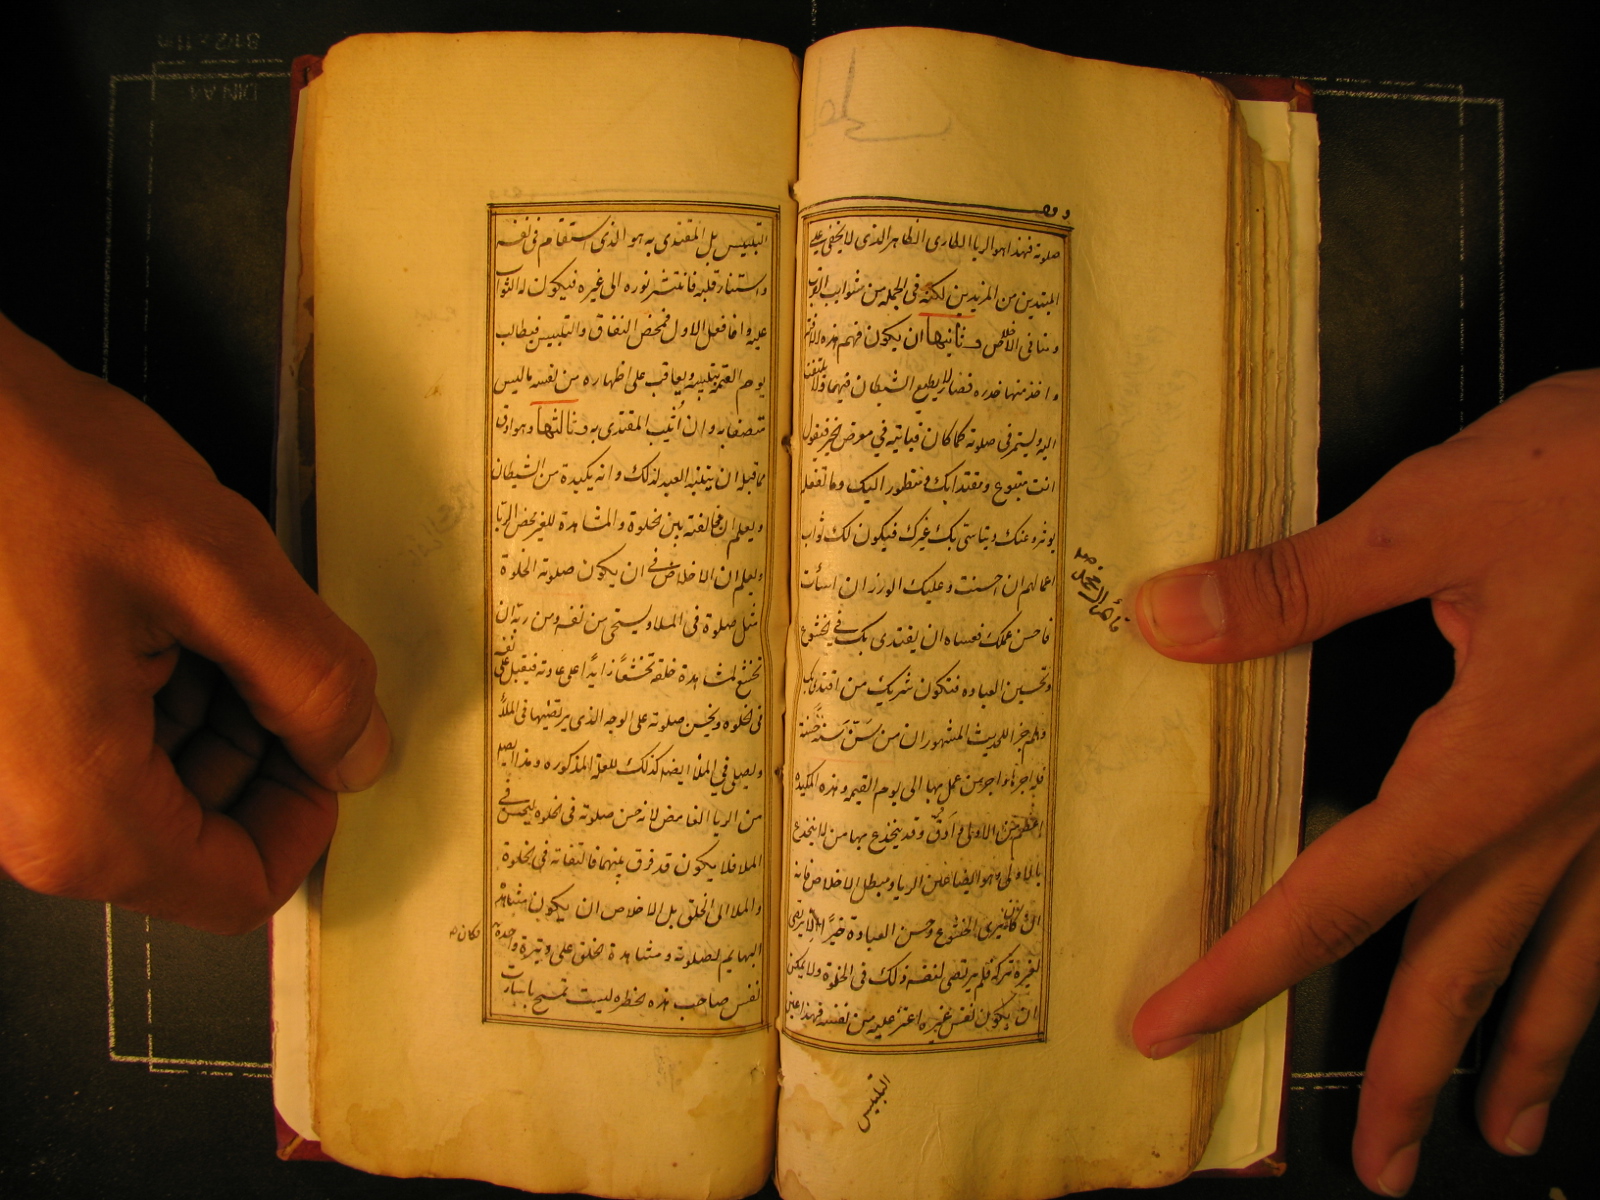 وقف
صلوته فهذا هو الريا الطارى الظاهر الذى لا يخفى على
المبتدين من المريدين لكنه فى الجمله من شوايب القرب
وينافى الاخلاص وثانيها ان يكون فهم هذه الافة
واخذ منها حذره فصار لا يطيع الشيطان فيها ولا يلتفت
اليه ويستمر فى صلوته كما كان فياتيه فى معرض الخير فيقول
انت متبوع ومقتدا بك ومنظور اليك وما تفعله
يوثر عنك ويتاسى بك غيرك فيكون لك ثواب
اعمالهم ان احسنت وعليك الوزر ان اسأت
فاحسن عملك فعساه ان يقتدى بك فى الخشوع
وتحسين العباده فتكون شريك من اقتدى بك
وهلم جرا للحديث المشهور ان من سَنَّ سَنَةً حَسَنة
فله اجرها واجر من عمل بها الى يوم القيمه وهذه المكيده
اعظم من الاولى وادق وقد ينخدع بها من لا ينخدع
بالاولى وهو ايضا عين الريا ومبطل الاخلاص فانه
ان كان يرى الخشوع وحسن العبادة خيرًا لا يرتضى
لغيره تركه فلم يرتضى لنفسه ذلك فى الخلوة ولا يمكن
ان يكون نفس غيره اعز عليه من نفسه فهذا عين
التلبيس
التلبيس بل المقتدى به هو الذى استقام فى نفسه
واستنار قلبه فانتشر نوره الى غيره فيكون له الثواب
عليه واما فعل الاول فمحض النفاق والتلبيس فيطالب
يوم القيمة بتلبيسه ويعاقب على اظهاره من نفسه ما ليس
متصفا به وان اُثيب المقتدى به وثالثها وهو ادق
مما قبله ان يتنبه العبد لذلك وانه مكيدة من الشيطان
ويعلم ان مخالفته بين الخلوة والمشاهدة للغير محض الريا
ويعلم ان الاخلاص فى ان يكون صلوته الخلوة
مثل صلوة فى الملا ويستحى من نفسه ومن ربه ان
تخشع لمشاهدة خلقه تخشعًا زايدًا على عادته فيقبل على نفسه
فى الخلوه ويحسن صلوته على الوجه الذى يرتضيها فى الملأ
ويصلى فى الملا ايضا كذلك للعلة المذكوره وهذا ايضا
من الريا الغامض لانه حسن صلوته فى الخلوه ليحسن فى
الملا فلا يكون قد فرق بينهما فالتفاته فى الخلوة
والملا الى الخلق بل الاخلاص ان يكون مشاهدة
البهايم لصلوته ومشاهدة الخلق على وتيرة واحدة
فكان
نفس صاحب هذه الخطره ليست تسمح باساءة